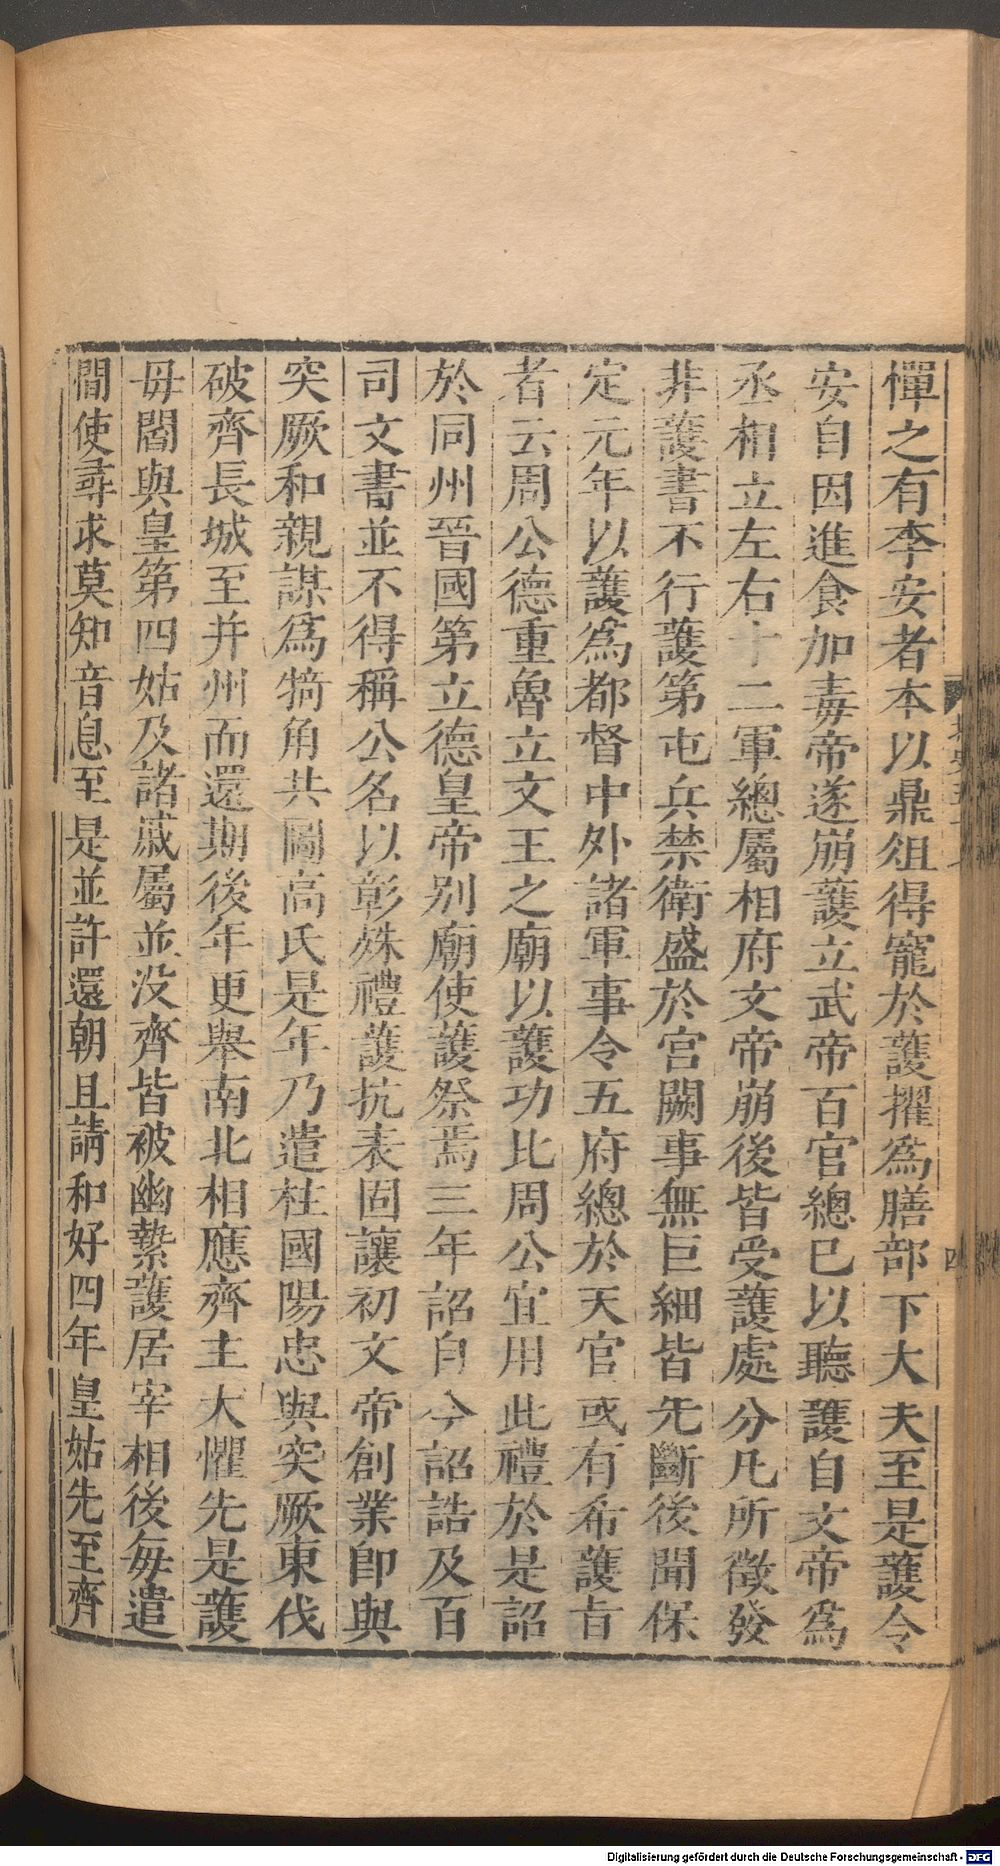 憚之有李安者本以鼎俎得寵於護擢爲膳部下大夫至是護令
安自因進食加毒帝遂崩護立武帝百官總已以聽護自文帝爲
丞相立左右十二軍總屬相府文帝崩後皆受護處分凡所徵發
非護書不行護第屯兵禁衛盛於宮闕事無巨細皆先斷後聞保
定元年以護爲都督中外諸軍事令五府總於天官或有希護旨
者云周公德重魯立文王之廟以護功比周公宜用此禮於是詔
於同州晉國第立德皇帝别廟使護祭焉三年詔自今詔誥及百
司文書並不得稱公名以彰殊禮護抗表固讓初文帝創業即與
突厥和親謀爲犄角共圖高氏是年乃遣柱國陽忠與突厥東伐
破齊長城至并州而還期後年更舉南北相應齊主大懼先是護
母閻與皇第四姑及諸戚屬並没齊皆被幽縶護居宰相後每遣
間使尋求莫知音息至是並許還朝且請和好四年皇姑先至齊
四
Digitalisierung gefördert durch die Deutsche Forschungsgemeinschaft - DFG